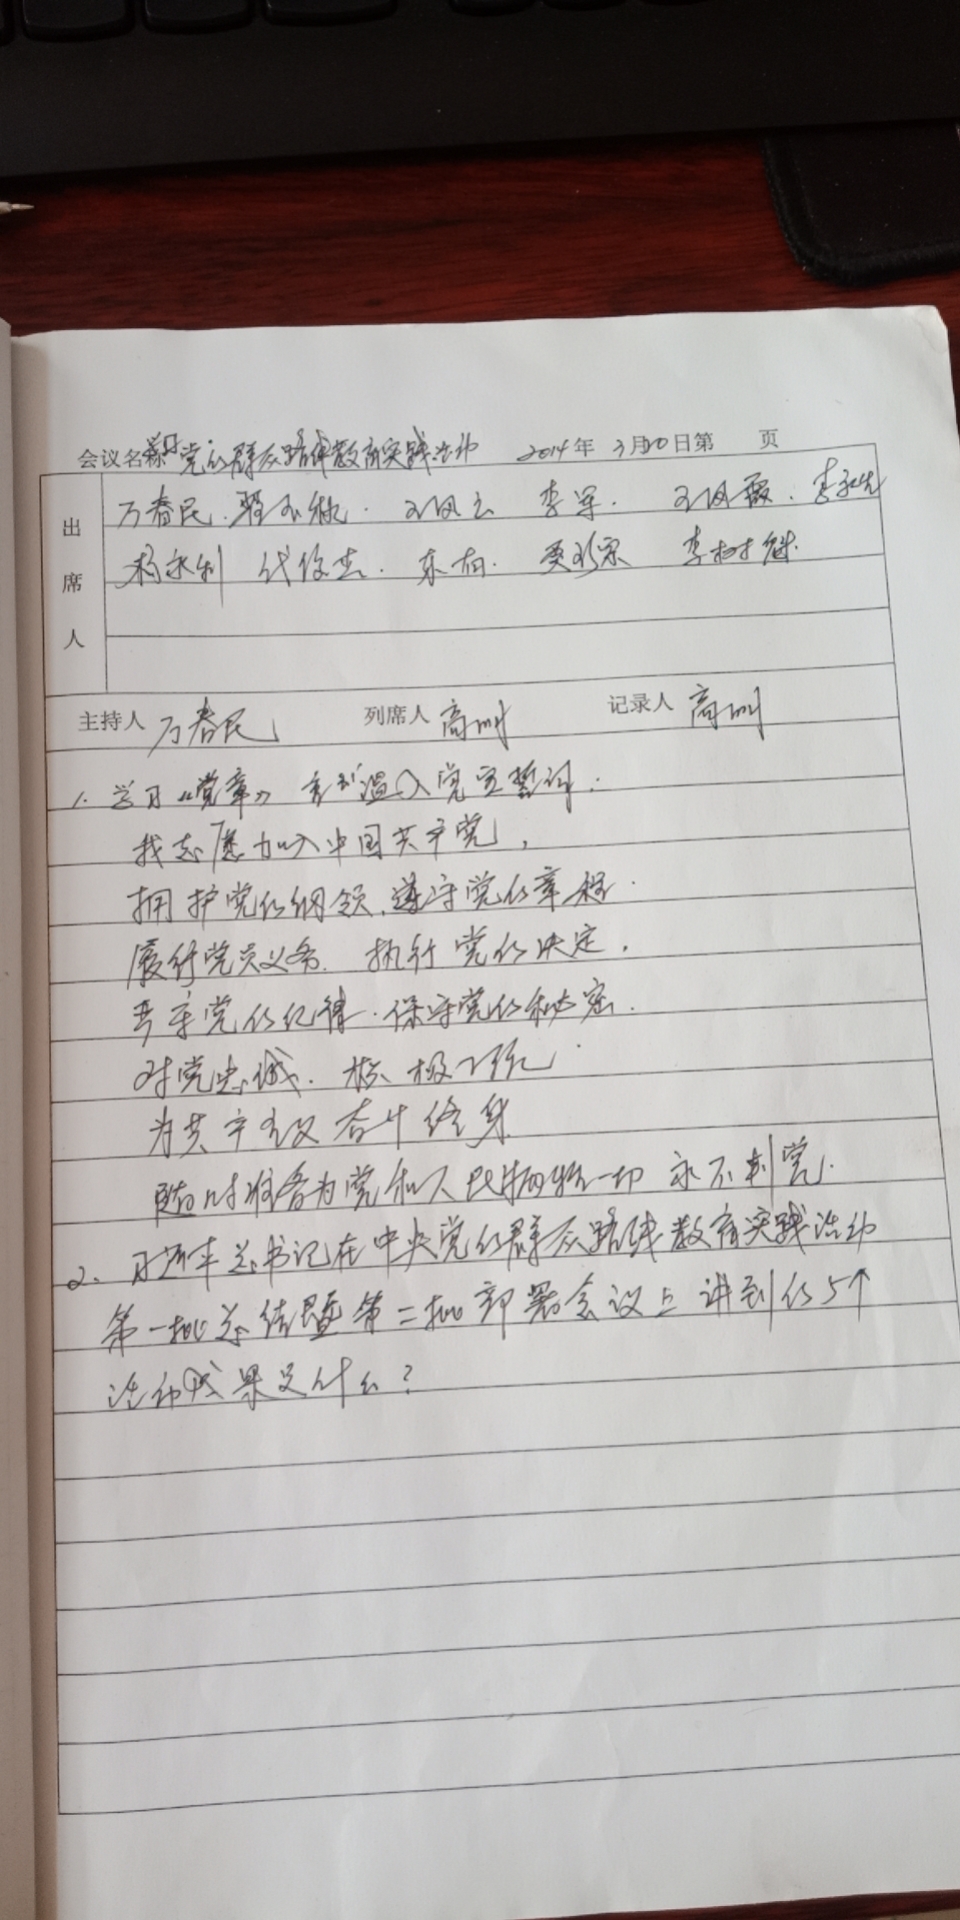 会议名称 学习党的群众路线教育实践活动 2014年3月20日第 页
出席人
万春民. 王凤云 李军. 王凤霞.
杨永利 代俊杰. 东柏. 李树魁.
主持人 万春民 列席人 高 记录人 高
1. 学习《党章》 重温入党宣誓词:
我志愿加入中国共产党,
拥护党的纲领.遵守党的章程.
履行党员义务. 执行党的决定.
严守党的纪律.保守党的秘密.
对党忠诚. 积极工作.
为共产主义奋斗终身
随时准备为党和人民牺牲一切 永不判党.
2. 习近平总书记在中央党的群众路线教育实践活动
第一批总结暨第二批部署会议上讲到的5个
活动成果是什么?